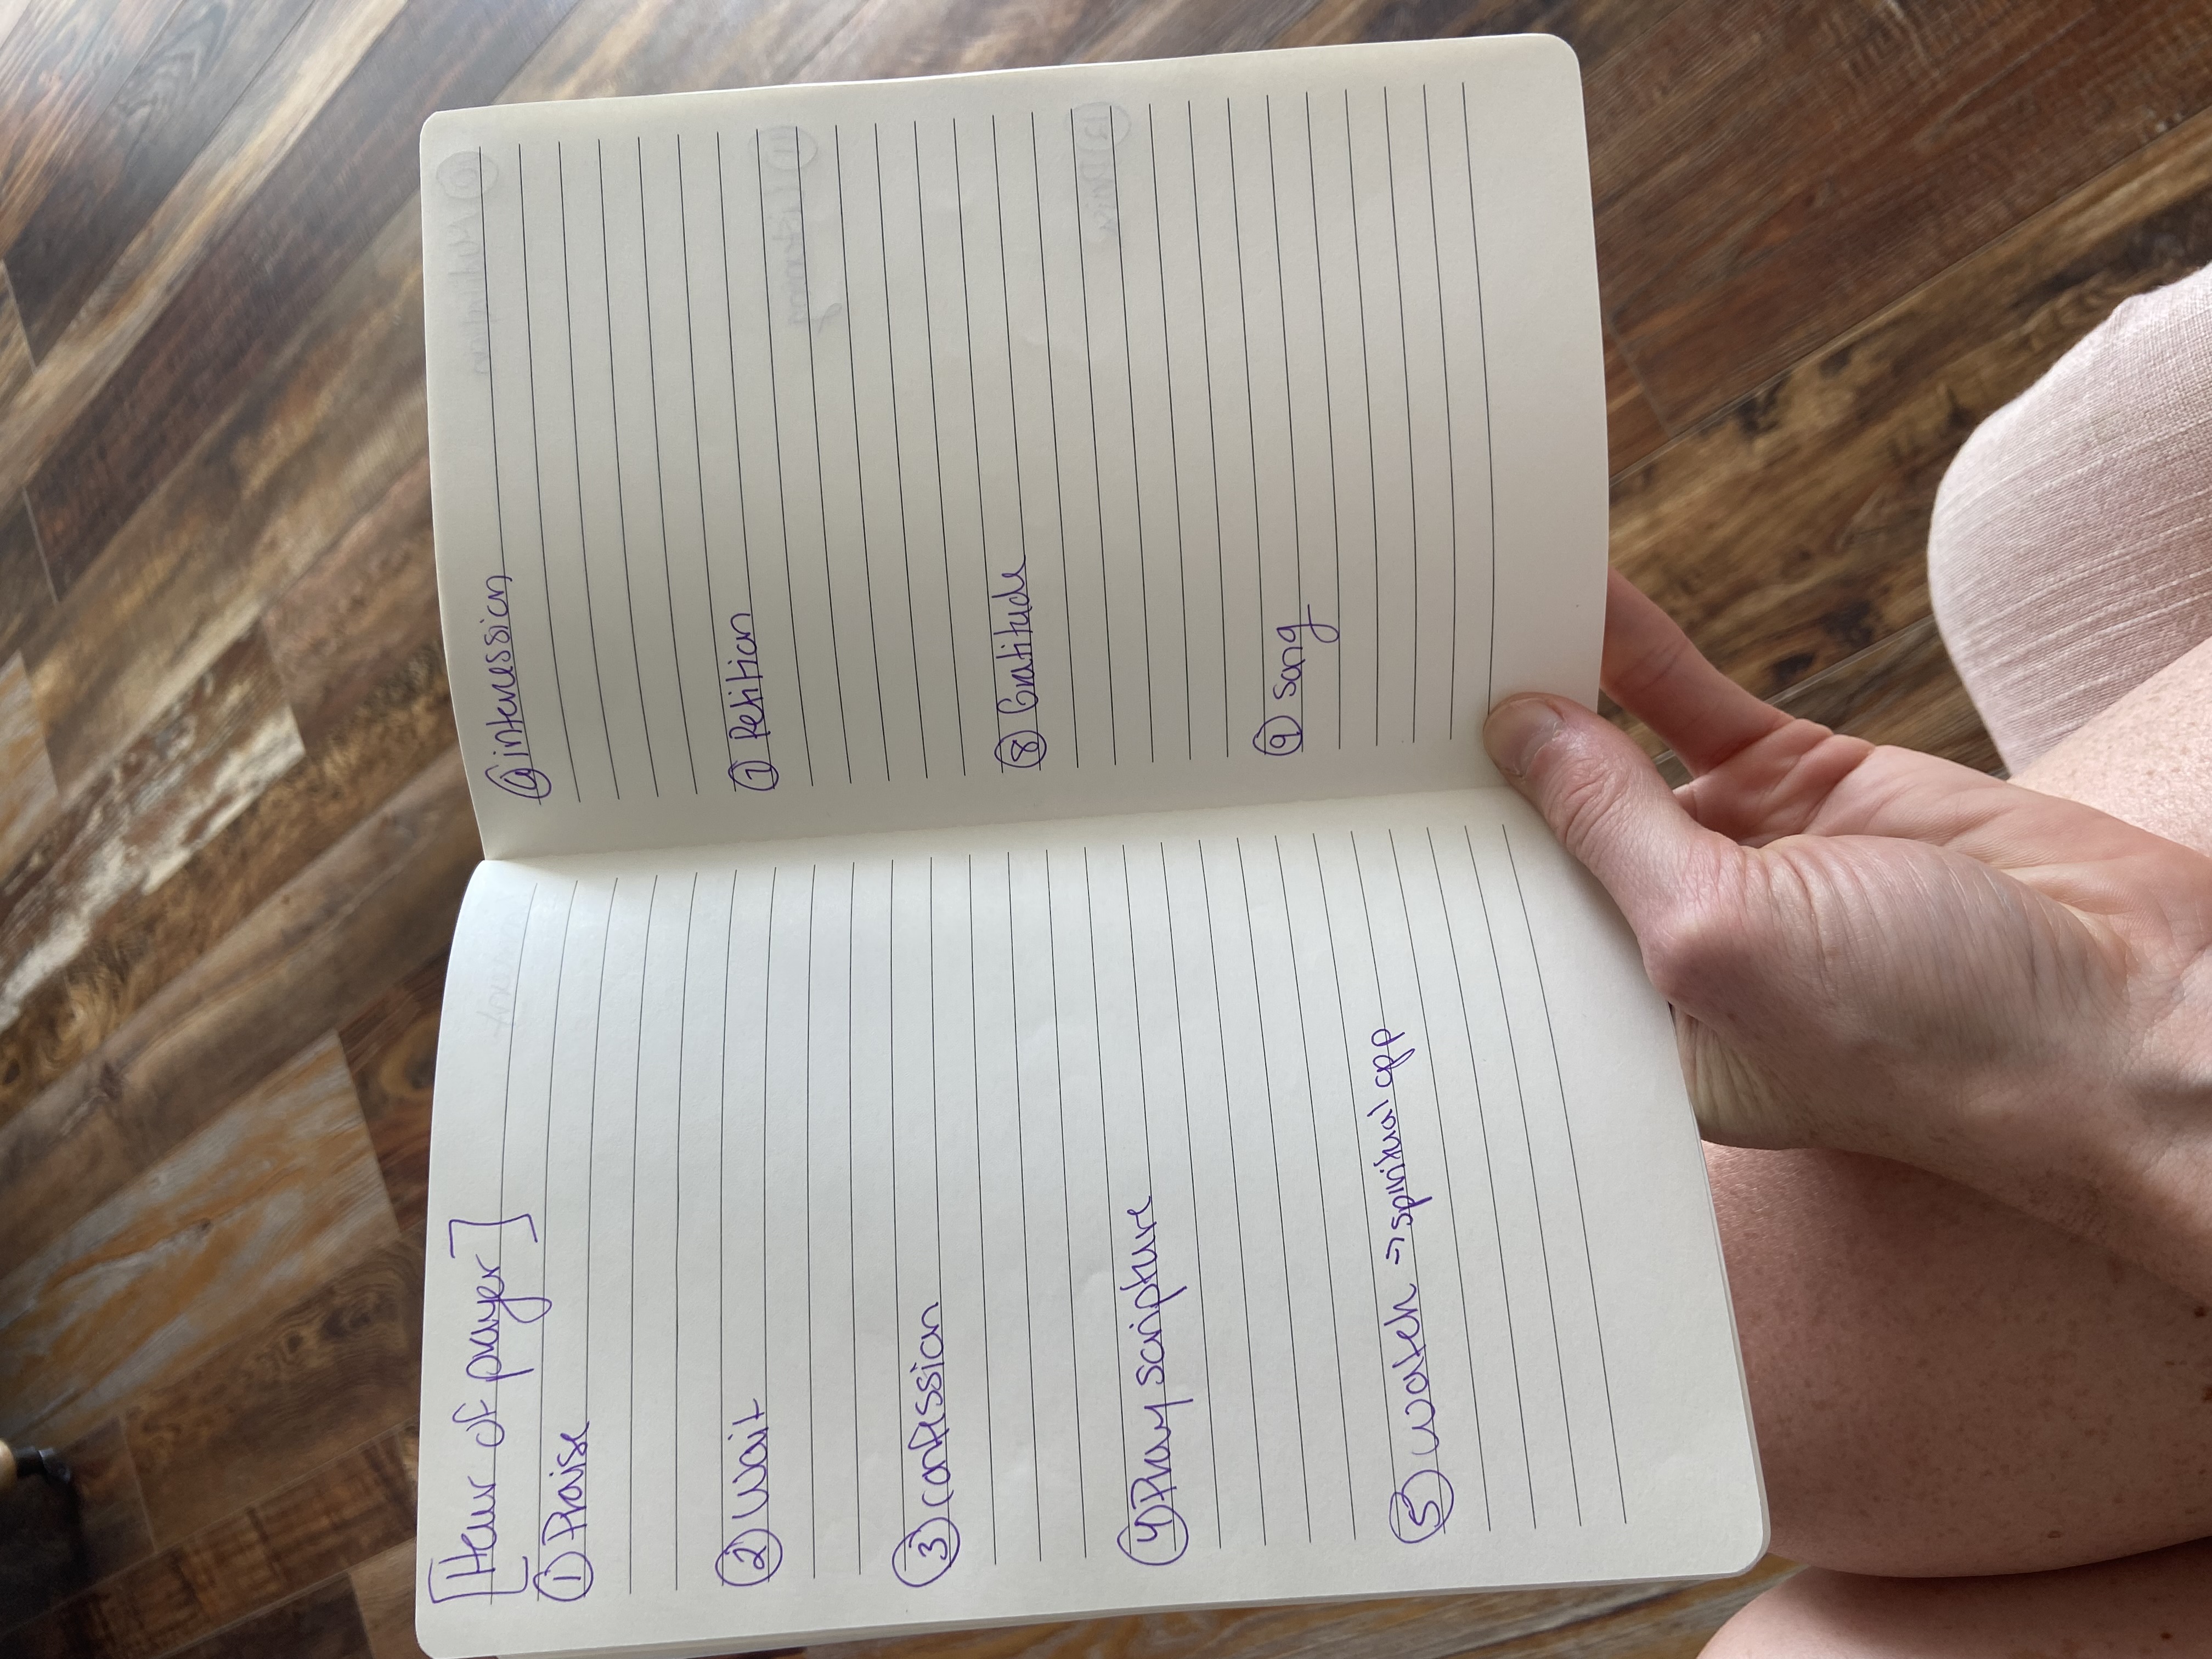 [Hour of prayer]
① Praise
② Wait
③ confession
④ Pray scripture
⑤ watch => spiritual opp
⑥ intercession
⑦ Petition
⑧ Gratitude
⑨ song